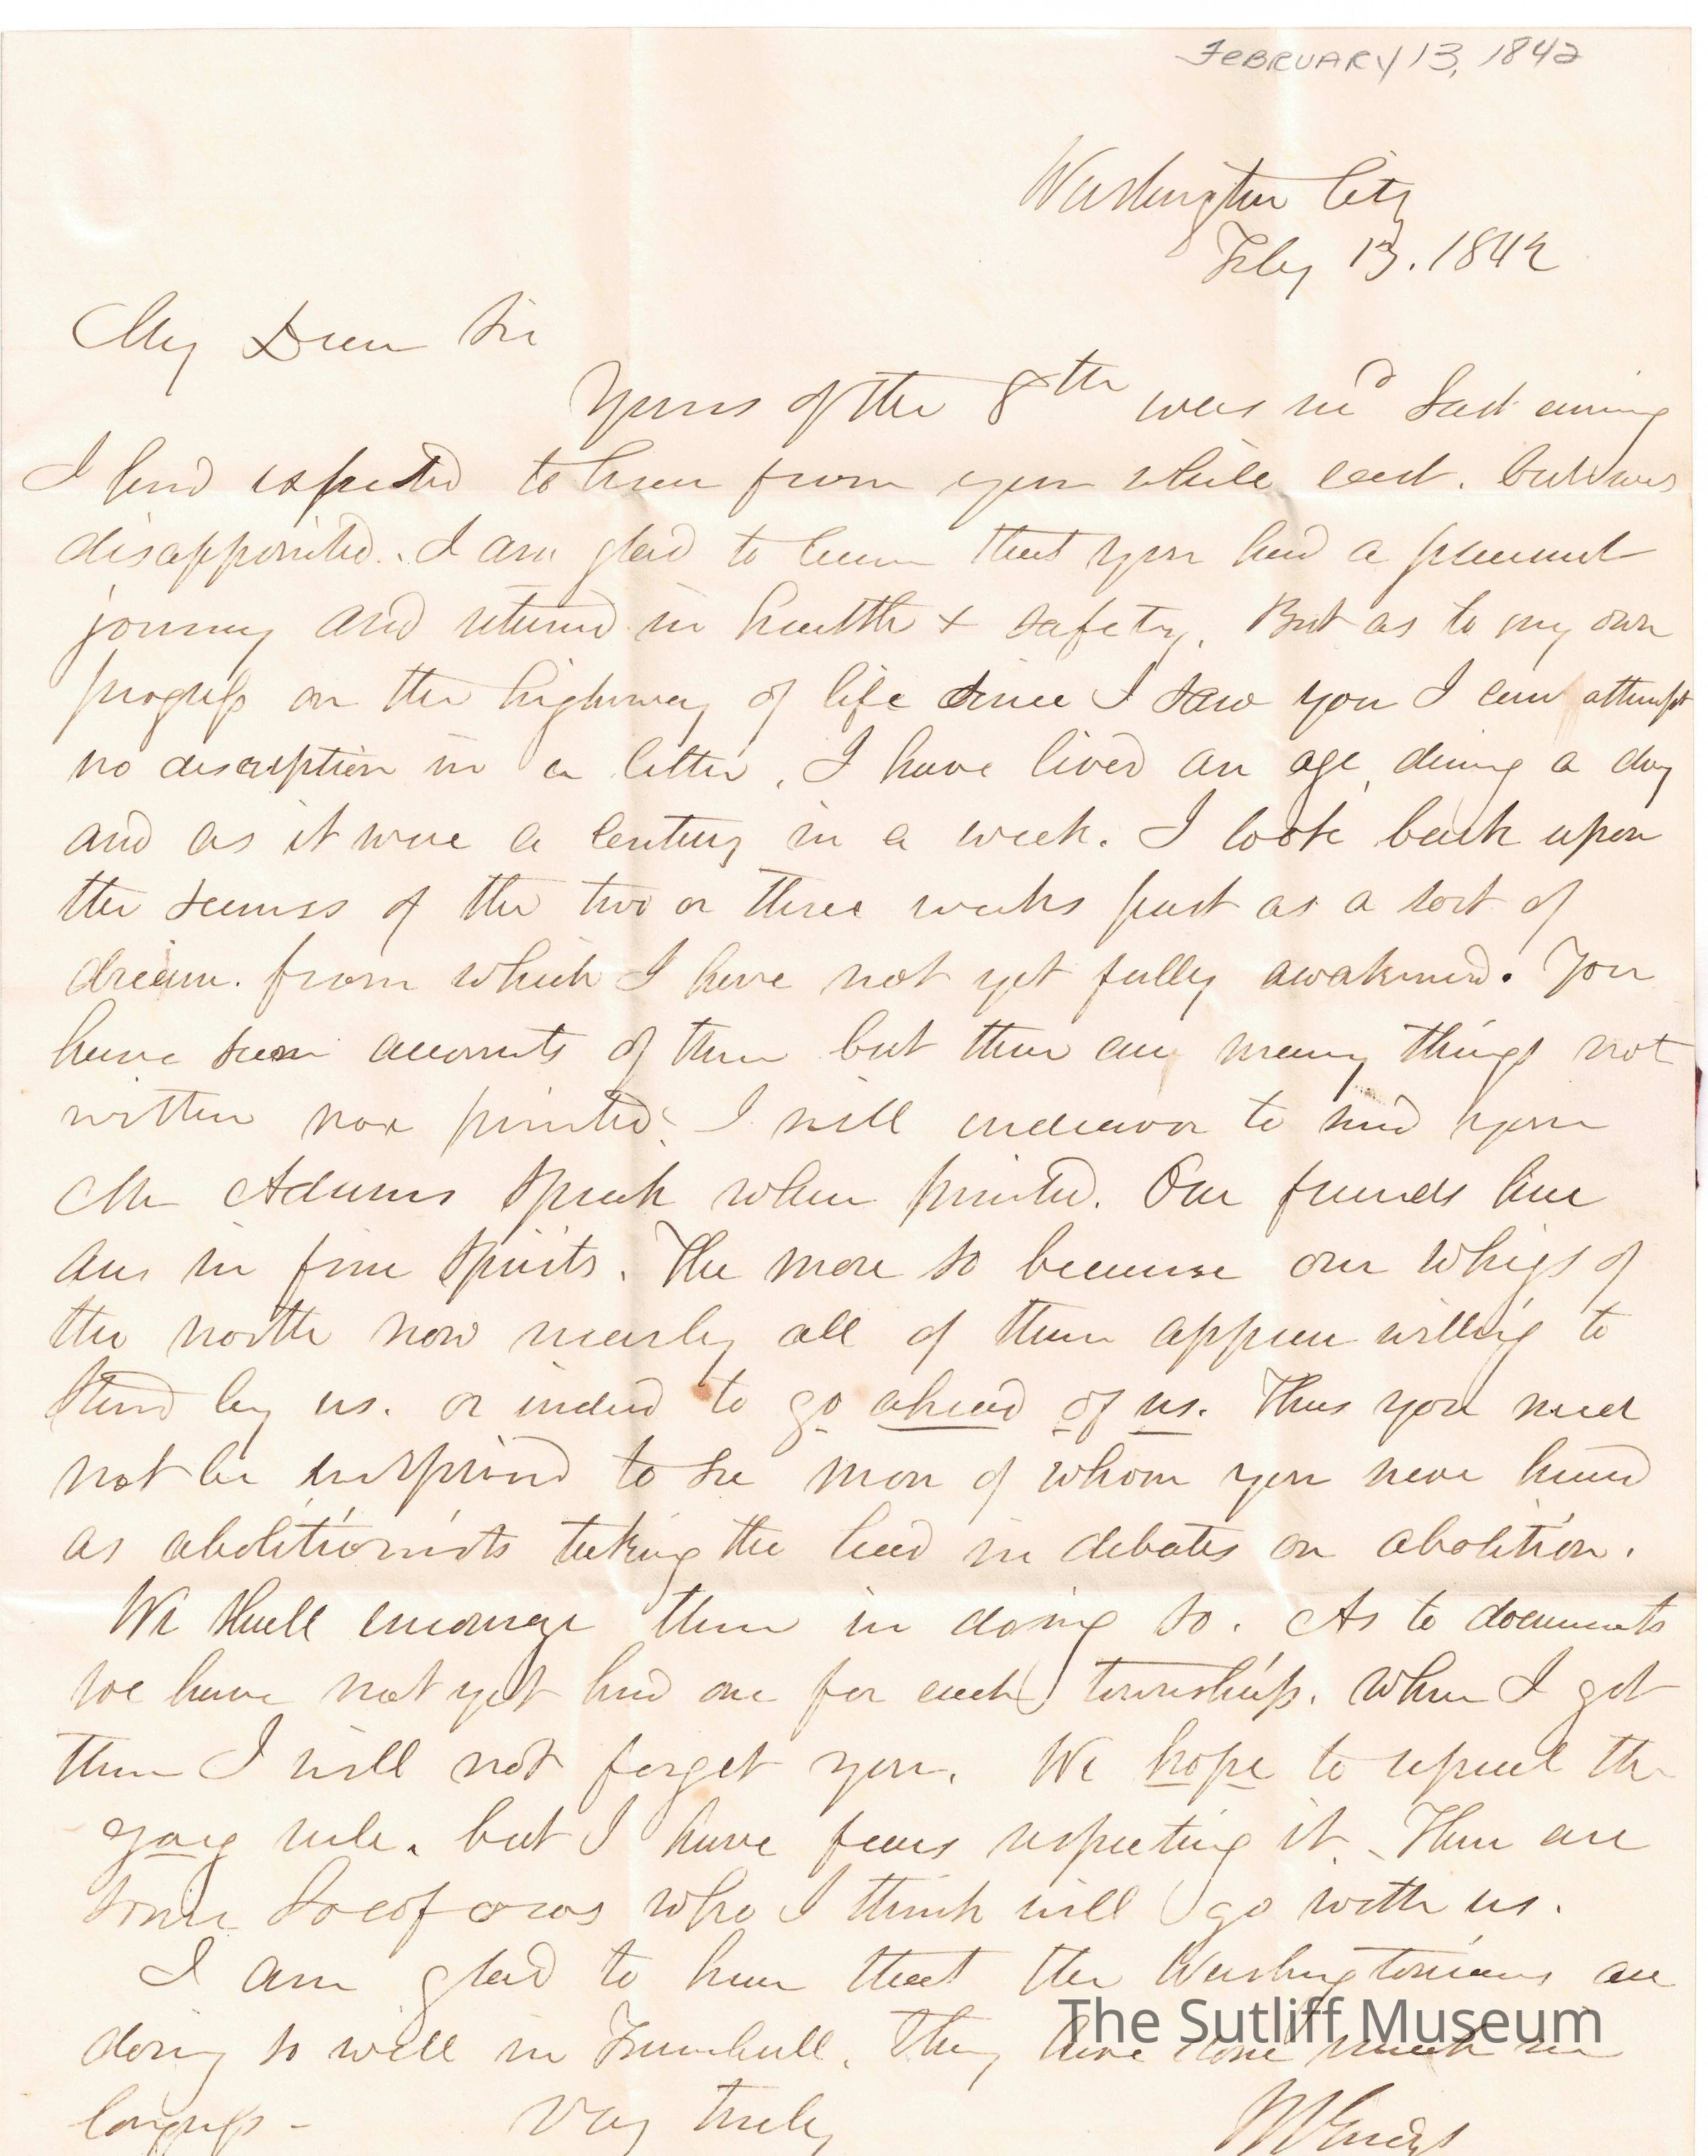 FEBRUARY 13, 1842
Washington City
Feby 13. 1842
My Dear Sir
Yours of the 8th was recd last evening
I had expected to hear from you while east. but was
disappointed. I am glad to learn that you had a pleasant
journey and returned in health & safety. But as to my own
progress on the highway of life since I saw you I can attempt
no description in a letter. I have lived an age, during a day
and as it were a century in a week. I look back upon
the scenes of the two or three weeks past as a sort of
dream. from which I have not yet fully awakened. You
have seen accounts of them but there are many things not
written nor printed. I will endeavor to send you
Mr Adams Speech when printed. Our friends here
are in fine spirits. The more so because our whigs of
the north now nearly all of them appear willing to
stand by us. or indeed to go ahead of us. Thus you need
not be surprised to see men of whom you never heard
as abolitionists taking the lead in debates on abolition.
We shall encourage them in doing so. As to documents
we have not yet had one for each township. when I get
them I will not forget you. We hope to repeal the
gag rule. but I have fears respecting it. There are
some Locofocos who I think will go with us.
I am glad to hear that the Washingtonians are
doing so well in Trumbull. They have done much in
The Sutliff Museum
Congress - Very truly